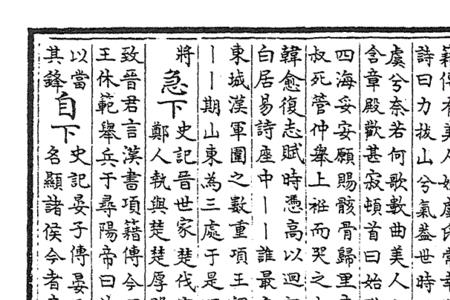 籍傳有美人姓虞氏常幸
詩曰力拔山兮氣蓋世時
虞兮奈若何歌數曲美人
含章殿歎甚寂頓首曰始
四海妥安願賜骸骨歸里
叔死管仲舉上衽而哭之
韓愈復志賦時憑高以迴
白居易詩座中丨丨誰最
東城漢軍圍之數重項王
丨丨期山東為三處于是
將
急下
史記晉世家楚伐
鄭人執與楚楚厚
致晉君言漢書項籍傳今
王休範舉兵于尋陽帝曰
以當
其鋒
自下
史記晏子傳晏
名顯諸侯今者